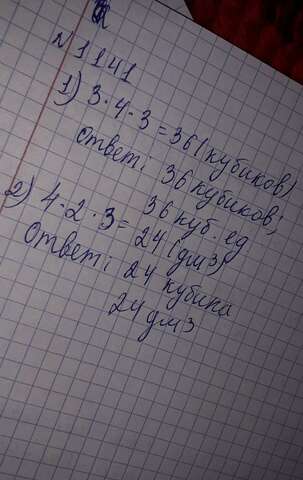 №1141
1) 3·4·3=36(кубиков)
ответ: 36 кубиков;
36 куб. ед
2) 4·2·3=24(дм3)
Ответ: 24 кубика
24 дм3